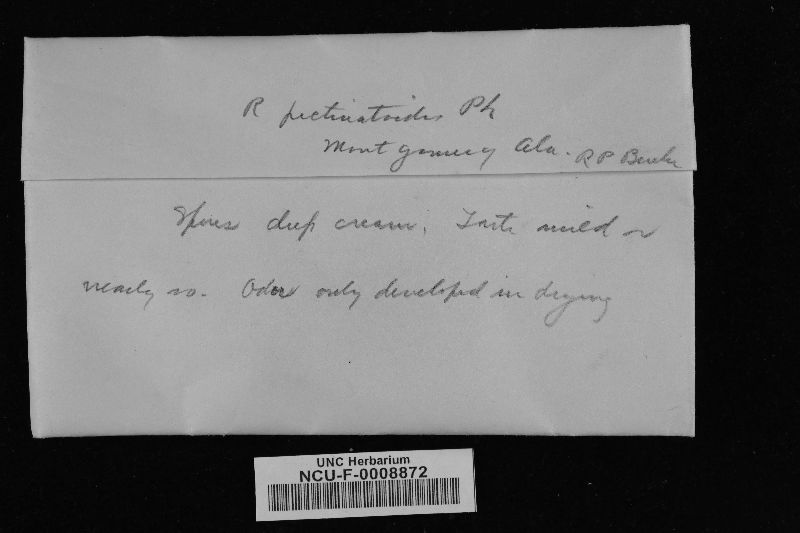 R pectinatoides Pk
Montgomery Ala. R P Burke
Spores deep cream. Taste mild or
nearly so. Odor only developed in drying
UNC Herbarium
NCU-F-0008872